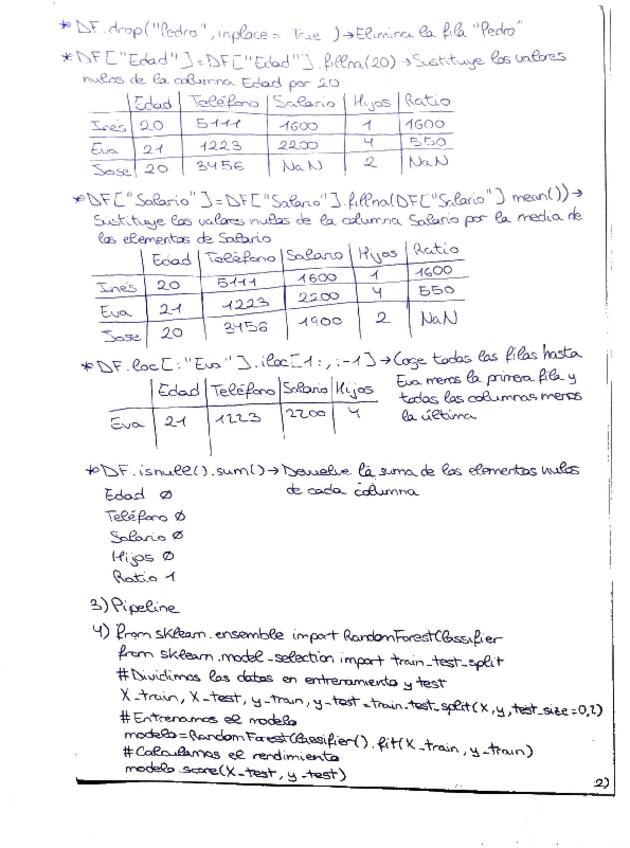 * DF.drop("Pedro", inplace = True) → Elimina la fila "Pedro"
* DF["Edad"] = DF["Edad"].fillna(20) → Sustituye los valores
nulos de la columna Edad por 20
Edad Teléfono Salario Hijos Ratio
Inés 20 5111 1600 1 1600
Eva 21 1223 2200 4 550
Jose 20 3456 NaN 2 NaN
* DF["Salario"] = DF["Salario"].fillna(DF["Salario"] mean()) →
Sustituye los valores nulos de la columna Salario por la media de
los elementos de Salario
Edad Teléfono Salario Hijos Ratio
Inés 20 5111 1600 1 1600
Eva 21 1223 2200 4 550
Jose 20 3456 1900 2 NaN
* DF.loc[:"Eva"].iloc[1:,:-1] → Coge todas las filas hasta
Eva menos la primera fila y
todas las columnas menos
la última
Edad Teléfono Salario Hijos
Eva 21 1223 2200 4
* DF.isnull().sum() → Devuelve la suma de los elementos nulos
de cada columna
Edad 0
Teléfono 0
Salario 0
Hijos 0
Ratio 1
3) Pipeline
4) from sklearn.ensemble import RandomForestClassifier
from sklearn.model_selection import train_test_split
# Dividimos los datos en entrenamiento y test
X_train, X_test, y_train, y_test = train_test_split(X, y, test_size=0,2)
# Entrenamos el modelo
modelo = RandomForestClassifier().fit(X_train, y_train)
# Calculamos el rendimiento
modelo.score(X_test, y_test)
2)